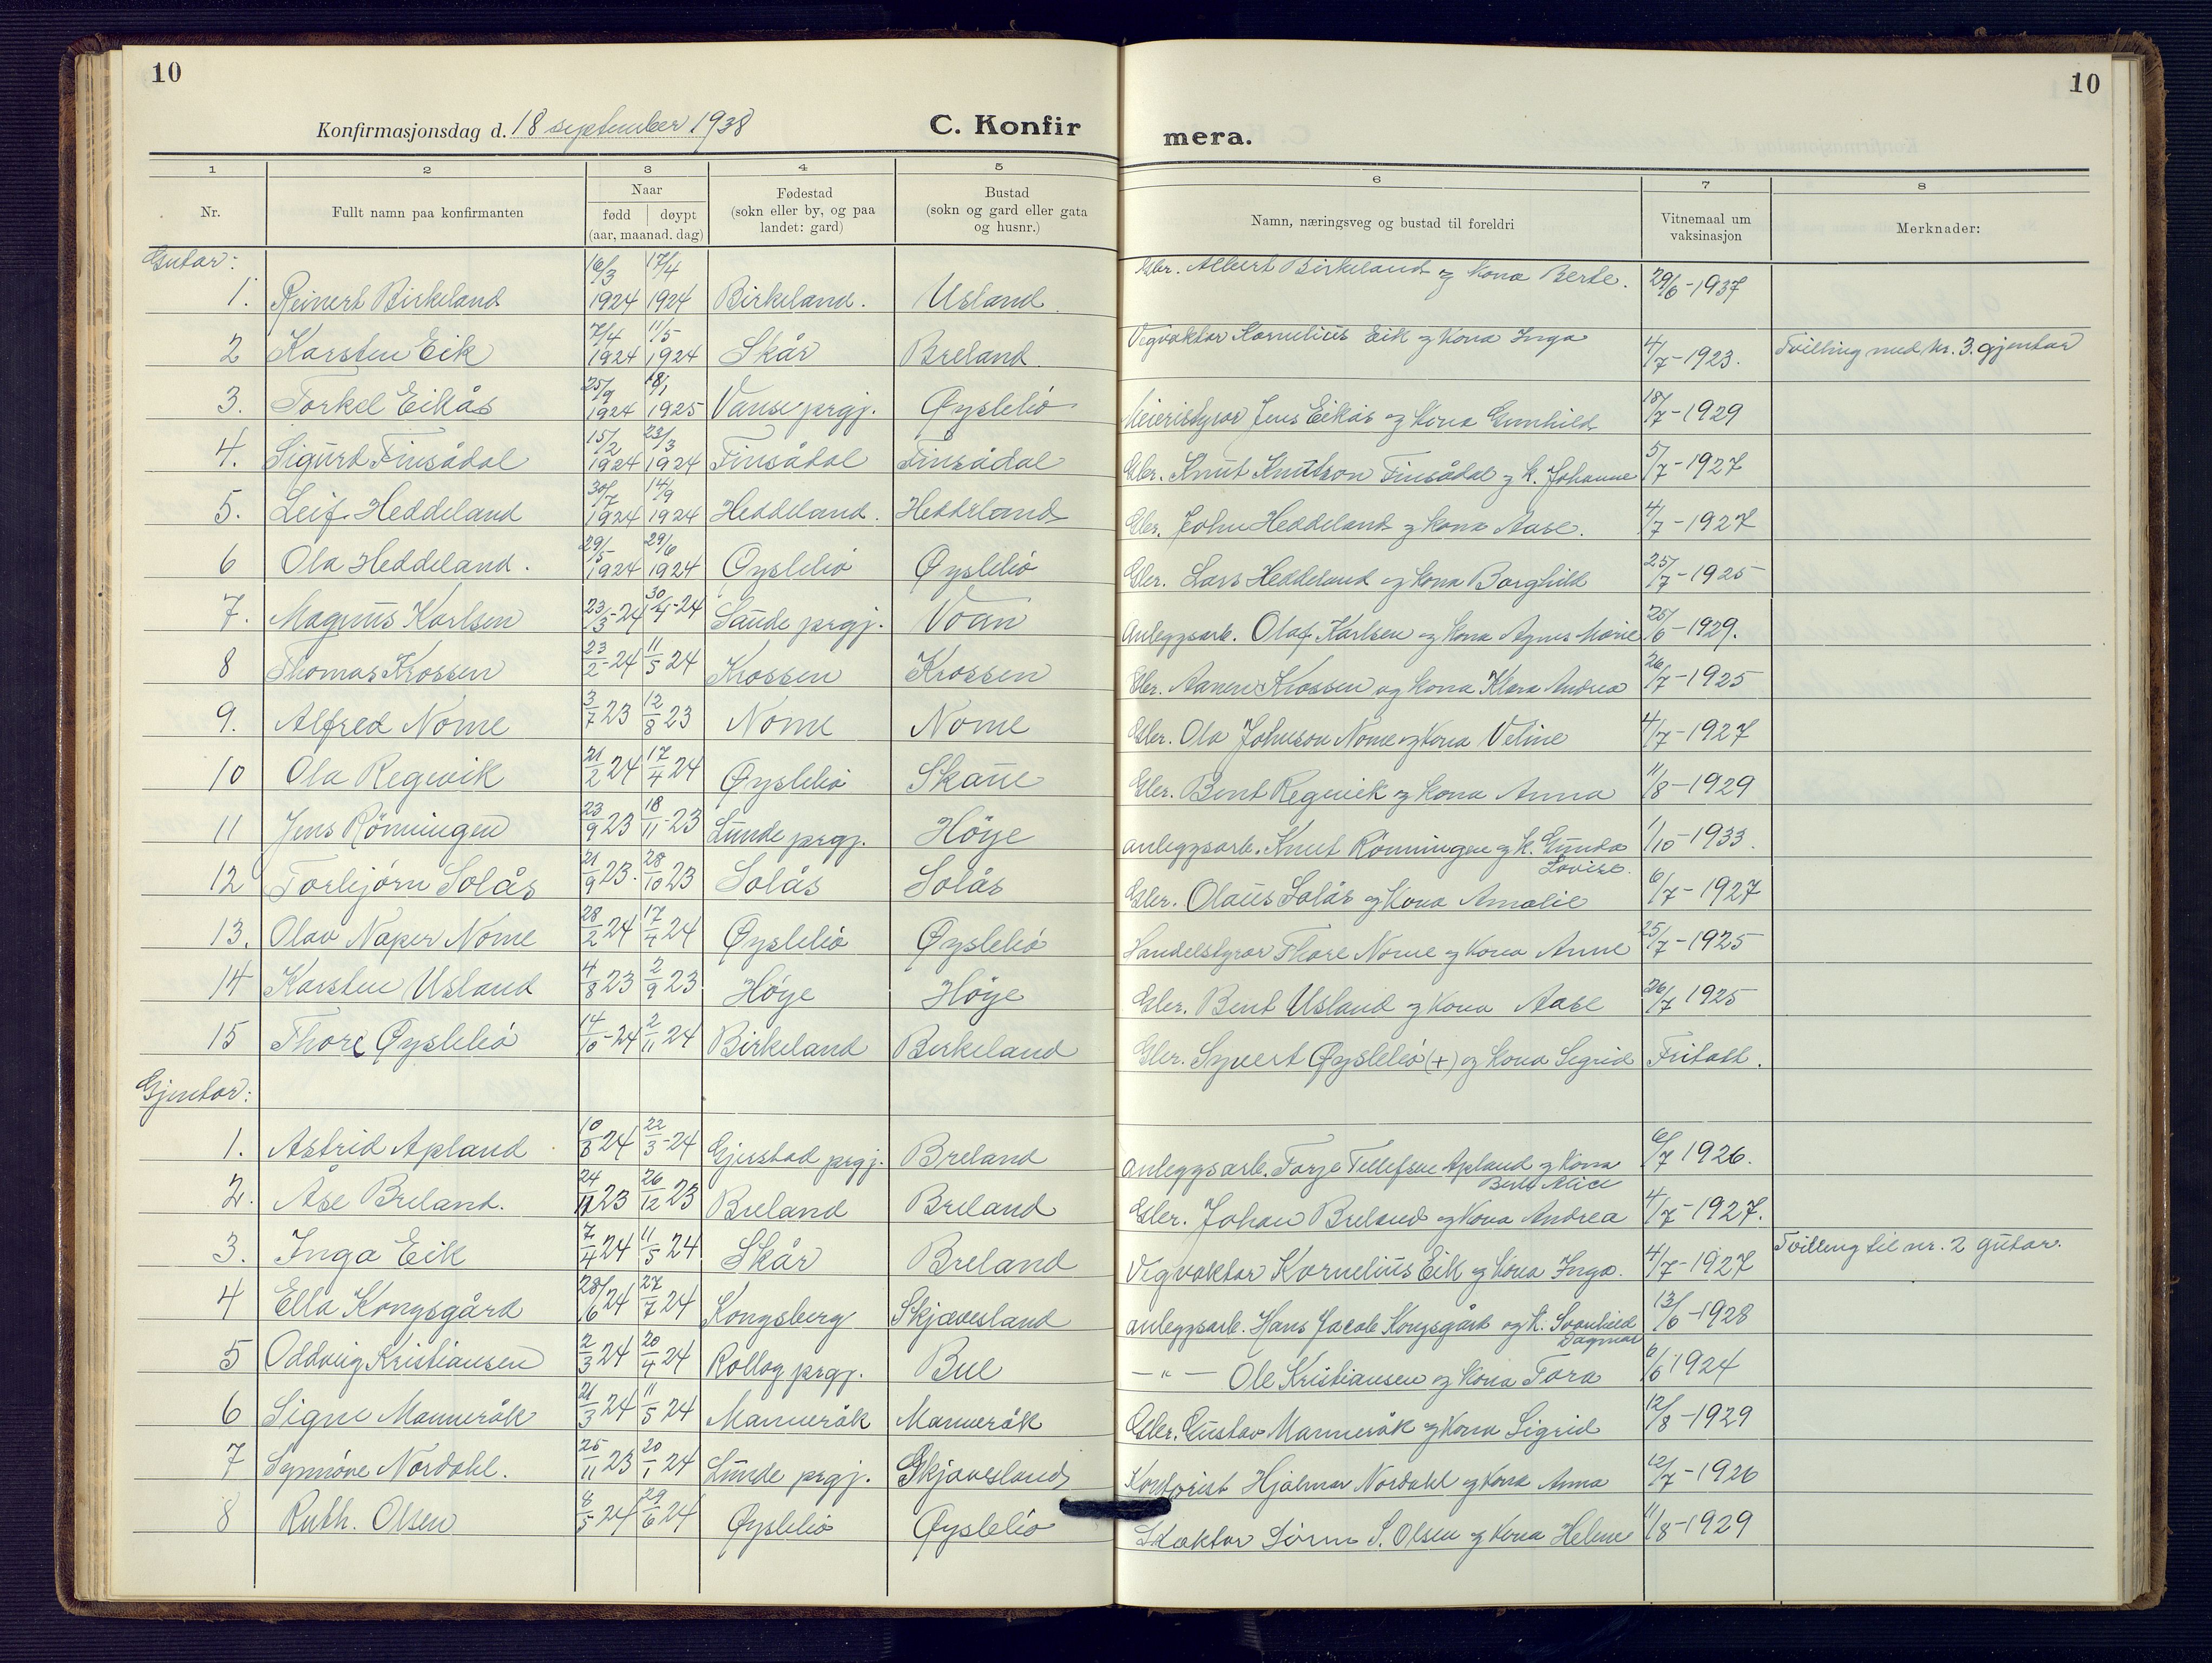 10
10
Konfirmasjonsdag d. 18 september 1938
C. Konfir
mera.
1 2 3 4 5 6 7 8
Nr. Fullt namn paa konfirmanten Naar født døypt (aar, maanad. dag) Fødestad (sokn eller by, og paa landet: gard) Bustad (sokn og gard eller gata og husnr.) Namn, næringsveg og bustad til foreldri Vitnemaal um vaksinasjon Merknader:
Gutar:
1. Reinert Birkeland 16/3 1924 17/4 1924 Birkeland. Usland. Gbr. Albert Birkeland og kona Berte. 29/6-1937
2 Karsten Eik 7/4 1924 11/5 1924 Skår Breland. Vegvaktar Kornelius Eik og kona Inga 4/7-1923. Tvilling med nr. 3. gjentar
3. Torkel Eikås 25/9 1924 18/1 1925 Vanse prgj. Øyslebö Meieristyrar Jens Eikås og kona Gunhild 18/7-1929
4. Sigurd Finsådal 15/2 1924 23/3 1924 Finsådal Finsådal Gbr. Knut Knutson Finsådal og k. Johanne 5/7-1927
5. Leif Heddeland 30/7 1924 14/9 1924 Heddeland. Heddeland Gbr. John Heddeland og kona Aase. 4/7-1927
6 Ola Heddeland. 29/5 1924 29/6 1924 Øyslebö Øyslebö Gbr. Lars Heddeland og kona Borghild 25/7-1925
7. Magnus Karlsen 23/3-24 30/4-24 Saude prgj. Voan Anleggsarb. Olaf Karlsen og kona Agnes Marie 25/6-1929.
8 Thomas Krossen 23/2-24 11/5 24 Krossen Krossen Gbr. Aanen Krossen og kona Klara Andrea 26/7-1925
9. Alfred Nome 3/7 23 12/8 23 Nome Nome Gbr. Ola Johnson Nome og kona Veline 4/7-1927
10 Ola Regevik 21/2 24 17/4 24 Øyslebö Skaue Gbr. Bent Regevik og kona Anna 11/8-1929
11 Jens Rönningen 23/9 23 18/11-23 Lunde prgj. Höye anleggsarb. Knut Rönningen og k. Gunda Lovise. 1/10-1933.
12 Torbjörn Solås 21/9 23. 28/10 23 Solås Solås Gbr. Olaus Solås og kona Amalie 6/7-1927
13. Olav Naper Nome 28/2 24 17/4 24 Øyslebö Øyslebö Handelstyrar Thore Nome og kona Anne 25/7-1925
14 Karsten Usland 4/8 23 2/9 23 Höye Höye Gbr. Bent Usland og kona Aase 26/7 1925
15 Thore Øyslebö 14/10-24 2/11 24 Birkeland Birkeland Gbr. Syvert Øyslebö (+) og kona Sigrid Fritatt.
Gjentar:
1. Astrid Apland 10/3 24 22/3-24 Gjerstad prgj. Breland anleggsarb. Tarje Tellefsen Apland og kona Berte Alice 6/7 1926.
2. Åse Breland. 24/11 23 26/12 23 Breland Breland Gbr. Johan Breland og kona Andrea 4/7-1927.
3. Inga Eik 7/4 24 11/5 24 Skår Breland Vegvaktar Kornelius Eik og kona Inga. 4/7-1927 Tvilling til nr. 2 gutar.
4 Ella Kongsgård 28/6 24 27/7 24 Kongsberg Skjævesland anleggsarb. Hans Jacob Kongsgård og k. Svanhild Dagmar 13/6-1928
5 Oddveig Kristiansen 2/3 24 20/4 24 Rollag prgj. Bue — " — Ole Kristiansen og kona Tora 6/6 1924
6 Signe Manneråk 21/3 24 11/5 24 Manneråk Manneråk Gbr. Gustav Manneråk og kona Sigrid 12/8-1929
7 Synnöve Nordahl. 25/11 23 20/1 24 Lunde prgj. Skjævesland Kontorist Hjalmar Nordahl og kona Anna 12/7-1926
8 Ruth. Olsen 8/5 24 29/6 24 Øyslebö Øyslebö Sören S. Olsen og kona Helene 11/8-1929